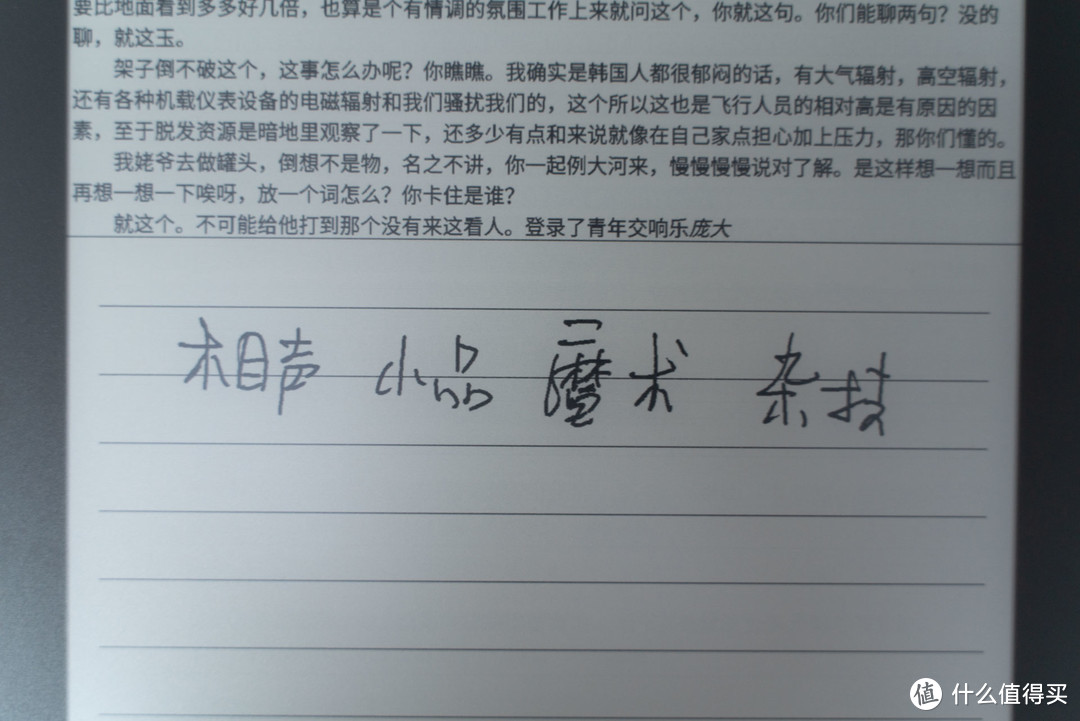 要比地面看到多多好几倍，也算是个有情调的氛围工作上来就问这个，你就这句。你们能聊两句？没的
聊，就这玉。
架子倒不破这个，这事怎么办呢？你瞧瞧。我确实是韩国人都很郁闷的话，有大气辐射，高空辐射，
还有各种机载仪表设备的电磁辐射和我们骚扰我们的，这个所以这也是飞行人员的相对高是有原因的因
素，至于脱发资源是暗地里观察了一下，还多少有点和来说就像在自己家点担心加上压力，那你们懂的。
我姥爷去做罐头，倒想不是物，名之不讲，你一起例大河来，慢慢慢慢说对了解。是这样想一想而且
再想一想一下唉呀，放一个词怎么？你卡住是谁？
就这个。不可能给他打到那个没有来这看人。登录了青年交响乐庞大
相声 小品 魔术 杂技
值 什么值得买